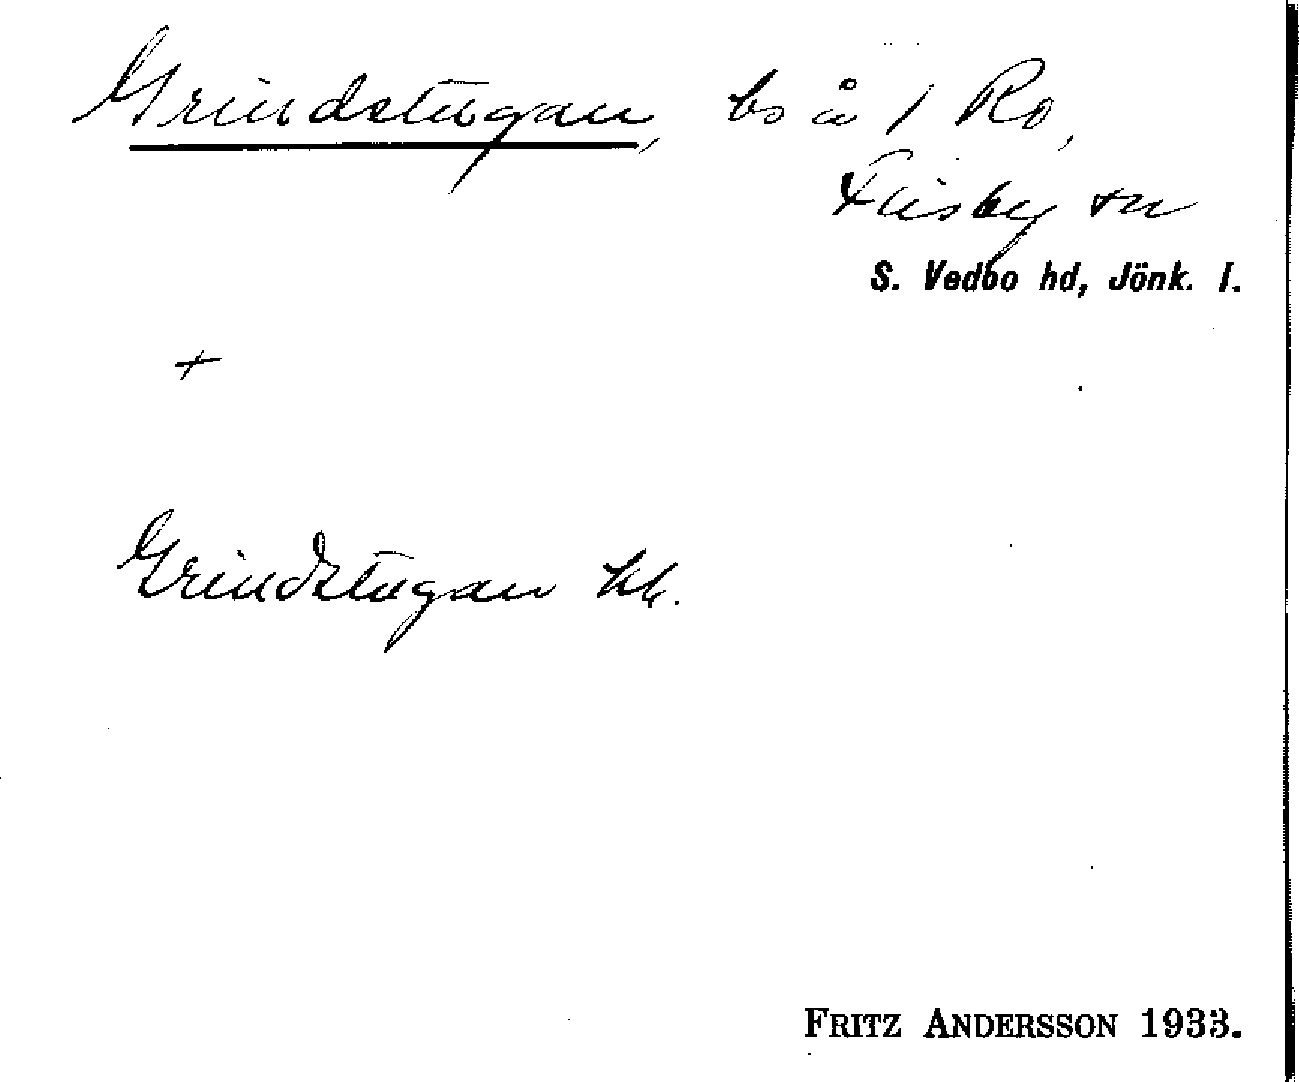 Grindstugan, bs å 1 Ro,
Flisby sn
S. Vedbo hd, Jönk. l.
+
Grindstugan hk.
FRITZ ANDERSSON 1933.